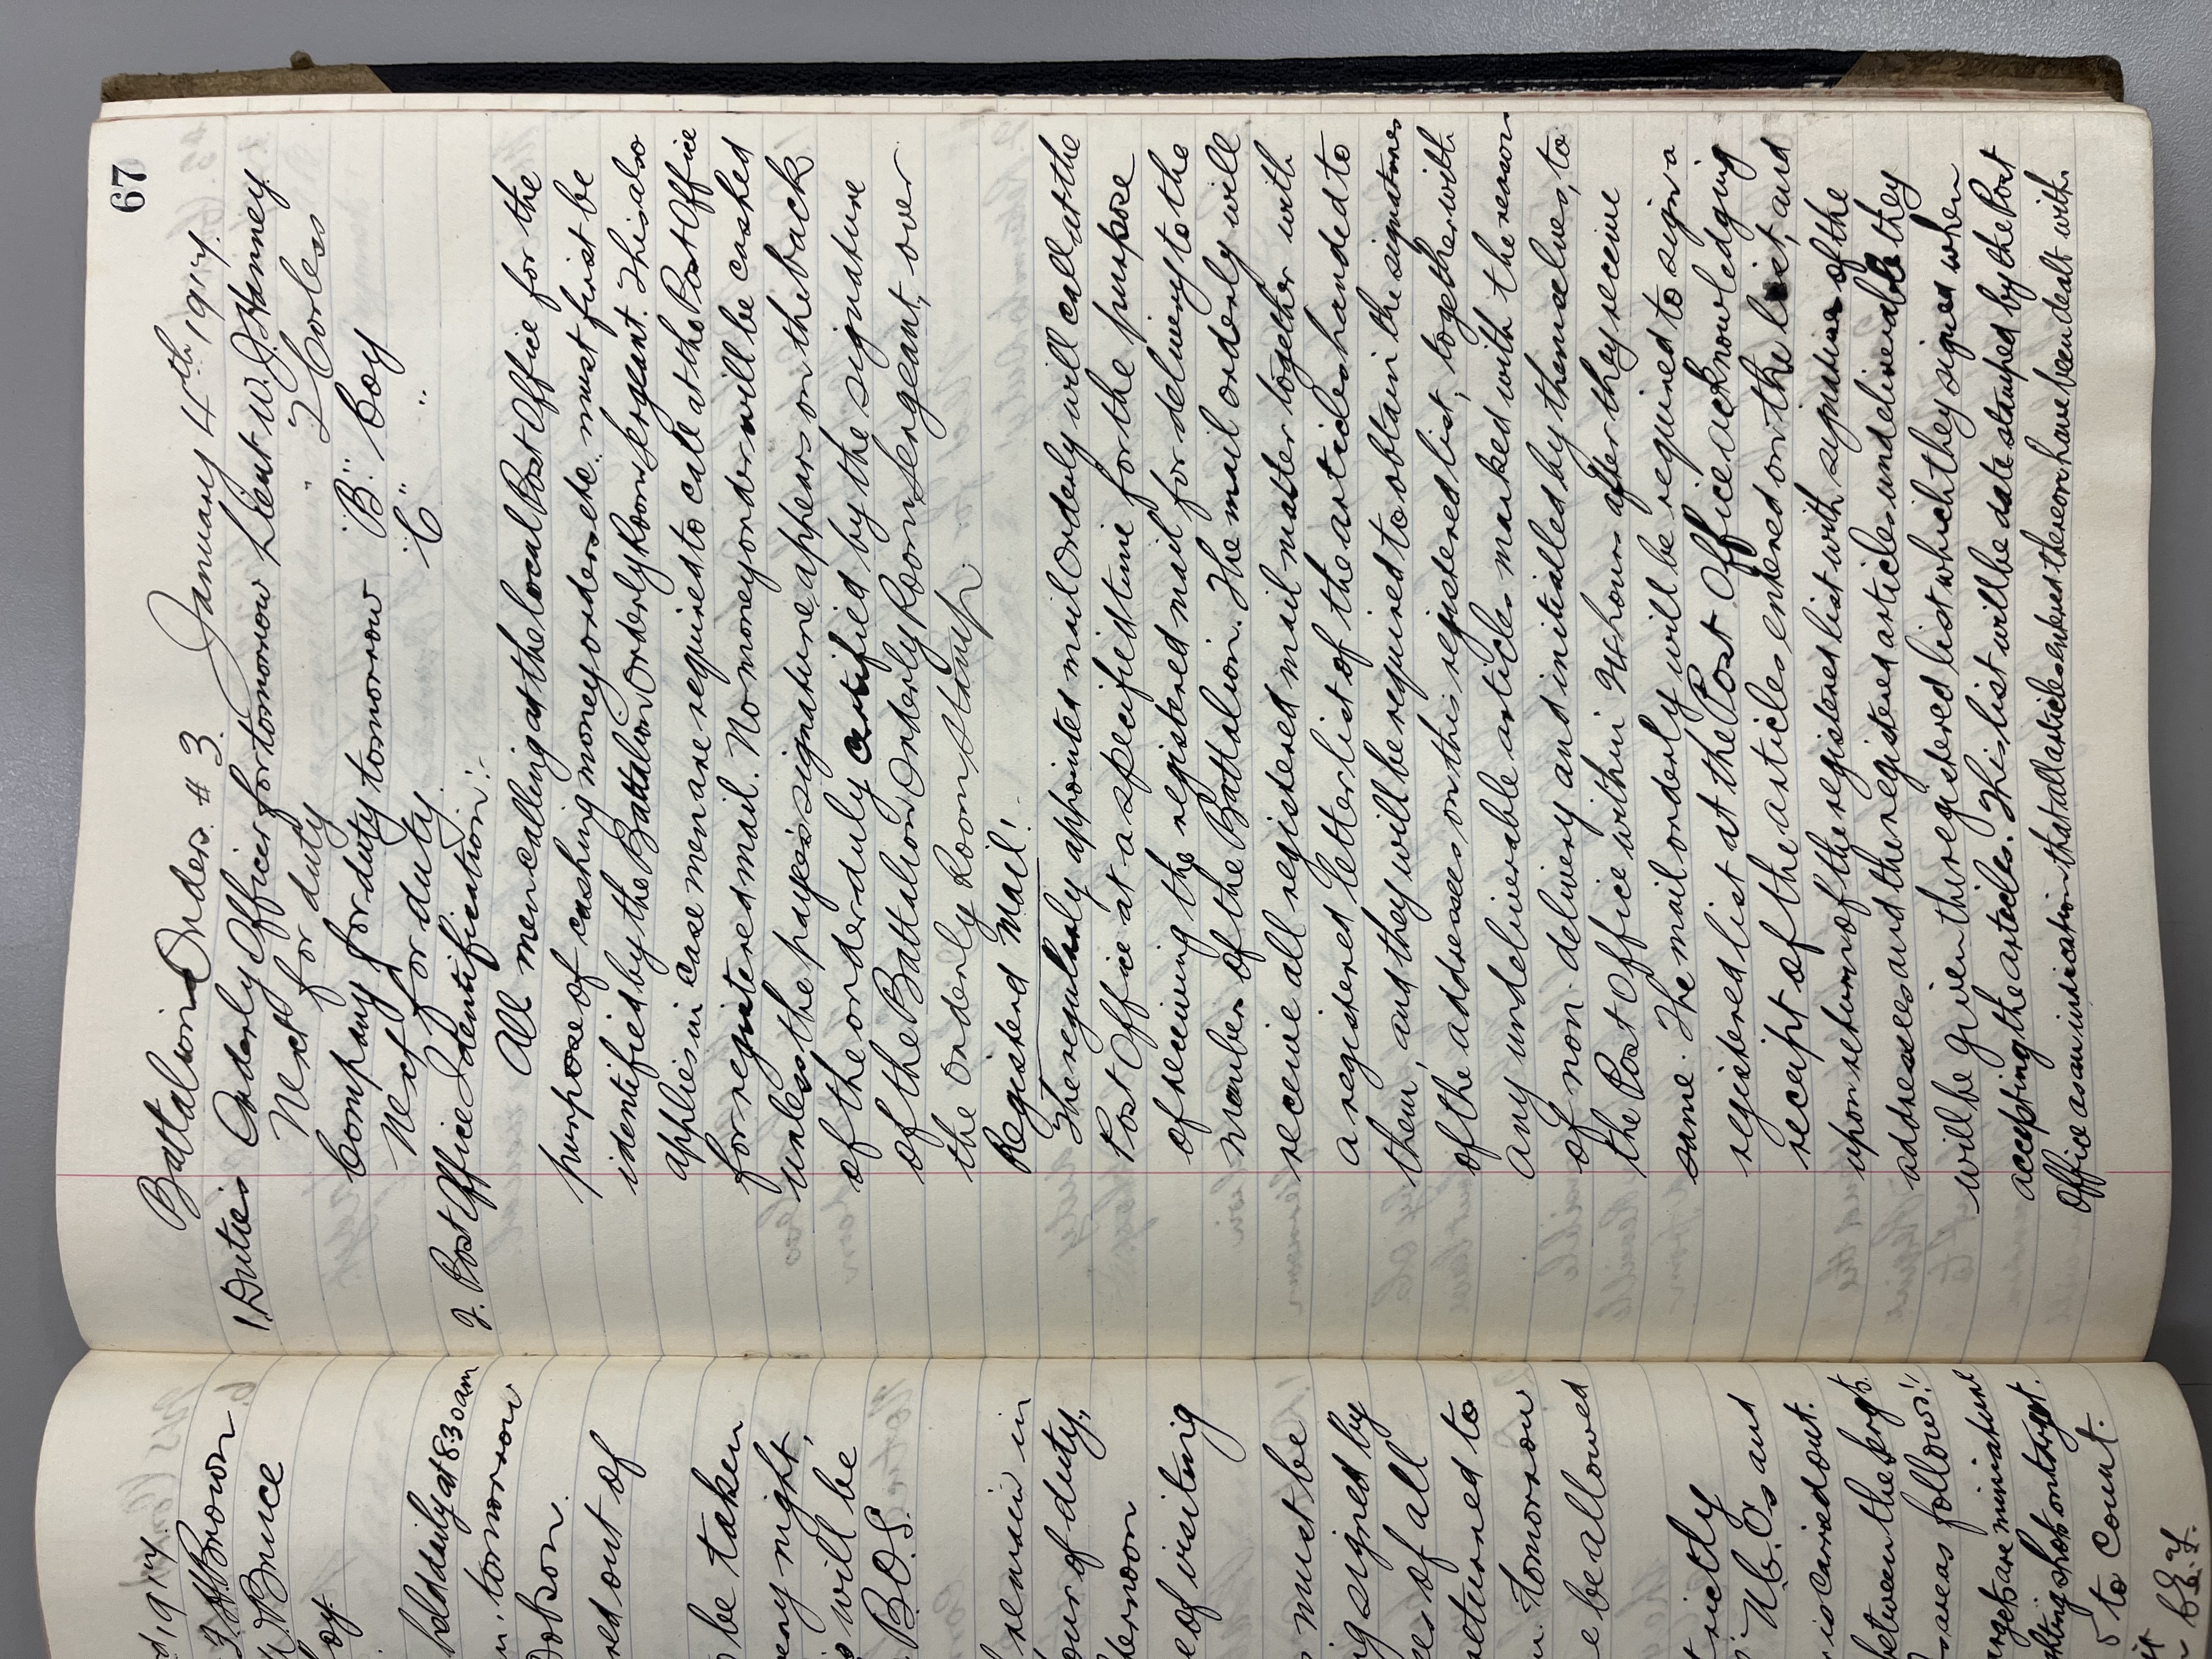 d, 1917.
J. H. Brown
W. Bruce
oy.
held daily at 8.30 am
tomorrow
Dobson.
red out of
be taken
ery night,
s will be
B.O.S.
remain in
our of duty,
ternoon
e of visiting
s must be
g signed by
es of all
returned to
tomorrow
e be allowed
rictly
N.C.O.s and
is carried out.
between the
as follows:-
argets are miniature
shot on target.
5 to Count.
67
Battalion Orders. # 3. January 4th 1917.
1. Duties Orderly Officer for tomorrow Lieut W. J. Hanney
Next for duty " J Corless
Company for duty tomorrow "B" Coy
Next for duty. "C" "
2. Post Office Identification:-
All men calling at the local Post Office for the
purpose of cashing money orders etc. must first be
identified by the Battalion Orderly Room Sergeant. This also
applies in case men are required to call at the Post Office
for registered mail. No money order will be cashed
unless the payee's signature appears on the back
of the order duly certified by the signature
of the Battalion Orderly Room Sergeant, over
the Orderly Room Stamp.
Registerd Mail:-
The regularly appointed mail Orderly will call at the
Post Office at a specified time for the purpose
of receiving the registered mail for delivery to the
Member of the Battalion. The mail orderly will
receive all registered mail matter together with
a registered letter list of the articles handed to
them, and they will be required to obtain the signatures
of the addressees on this registered list, together with
any undeliverable articles marked with the reason
of non delivery and initialled by themselves, to
the Post Office within 24 hours after they receive
same. The mail orderly will be required to sign a
registered list at the Post Office acknowledging
receipt of the articles entered on the list, and
upon return of the registered list with signatures of the
addressees and the registered articles undeliverable they
will be given the registered list which they signed when
accepting the articles. This list will be date stamped by the Post
Office as an indication that all articles entered thereon have been dealt with.